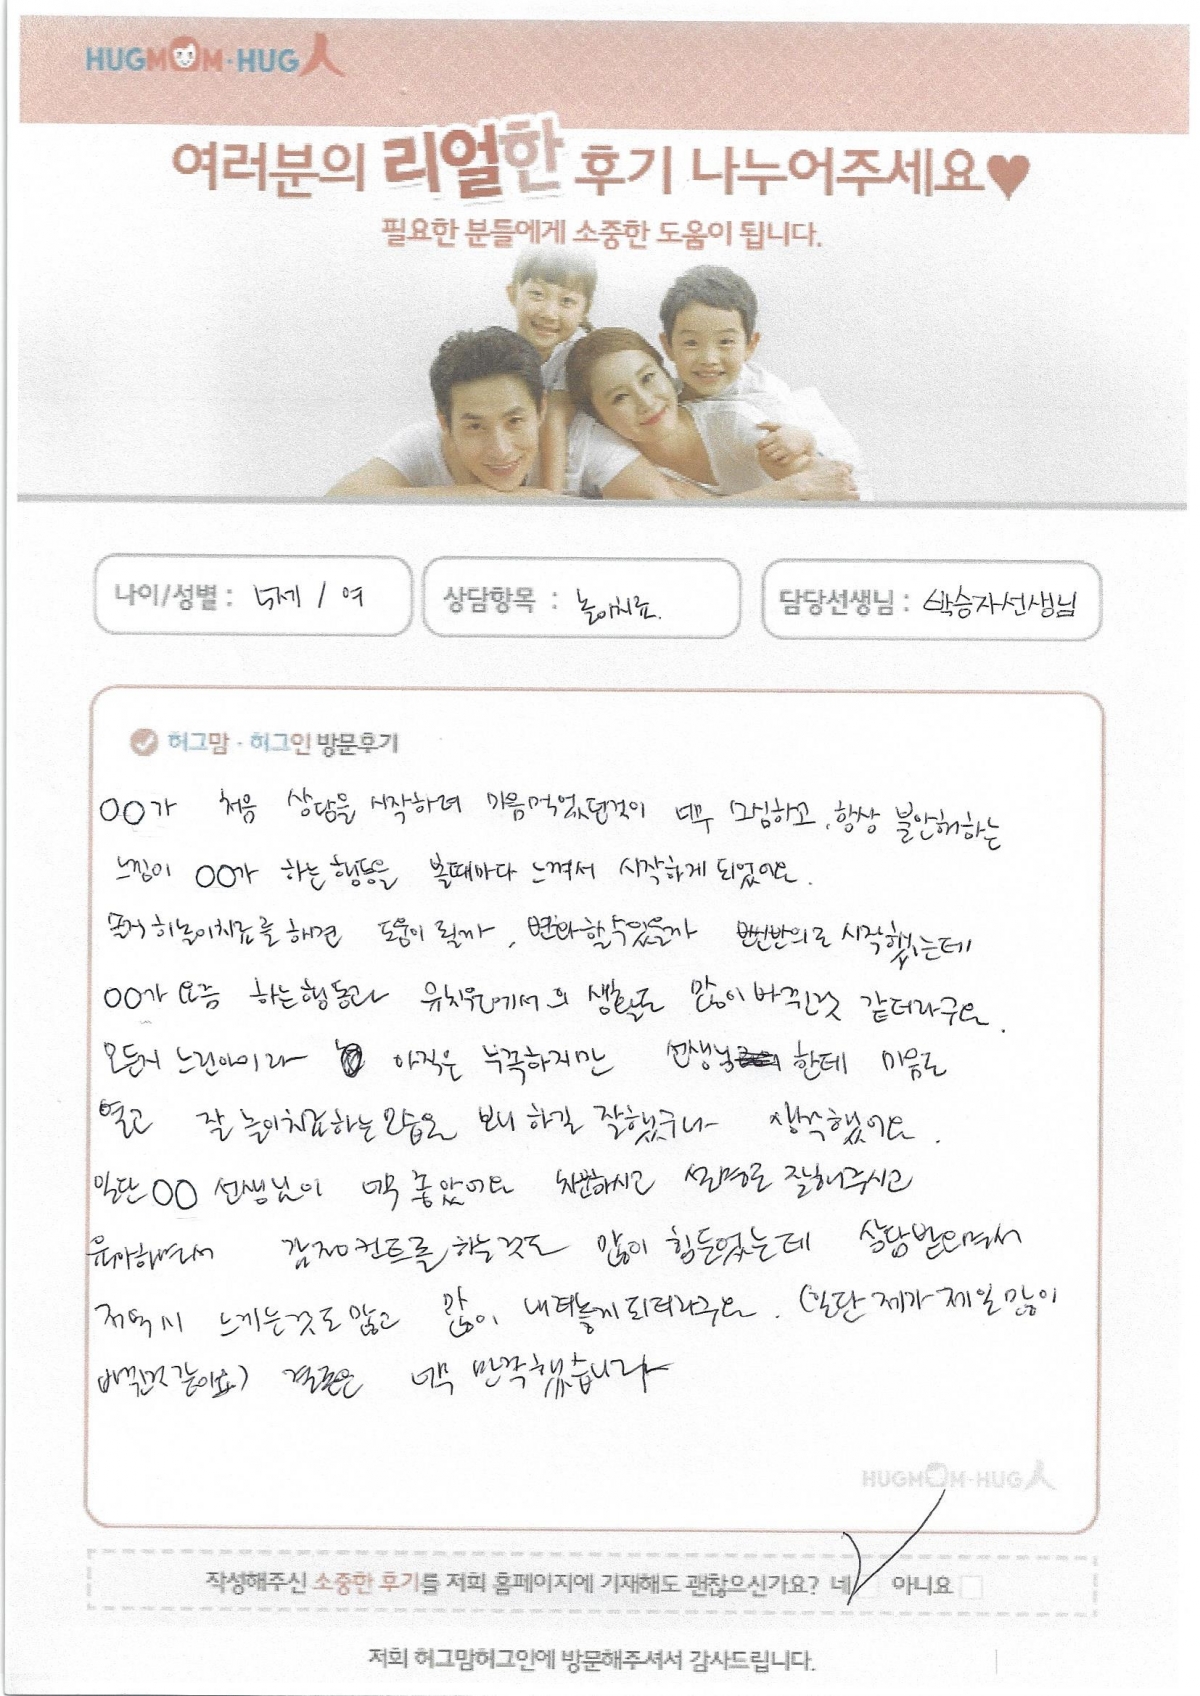 HUGMOM·HUG人
여러분의 리얼한 후기 나누어주세요♥
필요한 분들에게 소중한 도움이 됩니다.
나이/성별 : 5세 / 여
상담항목 : 놀이치료.
담당선생님 : 박승자선생님
허그맘·허그인 방문후기
○○가 처음 상담을 시작하려 마음먹었던것이 너무 소심하고, 항상 불안해하는
느낌이 ○○가 하는 행동을 볼때마다 느껴서 시작하게 되었어요.
놀이치료를 해면 도움이 될까, 변화할수있을까 반신반의로 시작했는데
○○가 요즘 하는행동과 유치원에서의 생활도 많이바뀐것 같더라구요.
모든지 느린아이라 아직은 부족하지만 선생님한테 마음을
열고 잘 놀이치료하는모습을 보니 하길 잘했구나 생각했어요.
일단 ○○ 선생님이 너무 좋았어요 차분하시고 설명을 잘해주시고
육아하면서 감정컨트롤 하는것도 많이 힘든었는데 상담받으면서
저역시 느끼는것도 많고 많이 내려놓게되더라구요. (일단 제가 제일 많이
바뀐것같아요) 결론은 너무 만족했습니다
HUGMOM·HUG人
작성해주신 소중한 후기를 저희 홈페이지에 기재해도 괜찮으신가요? 네 아니요
저희 허그맘허그인에 방문해주셔서 감사드립니다.